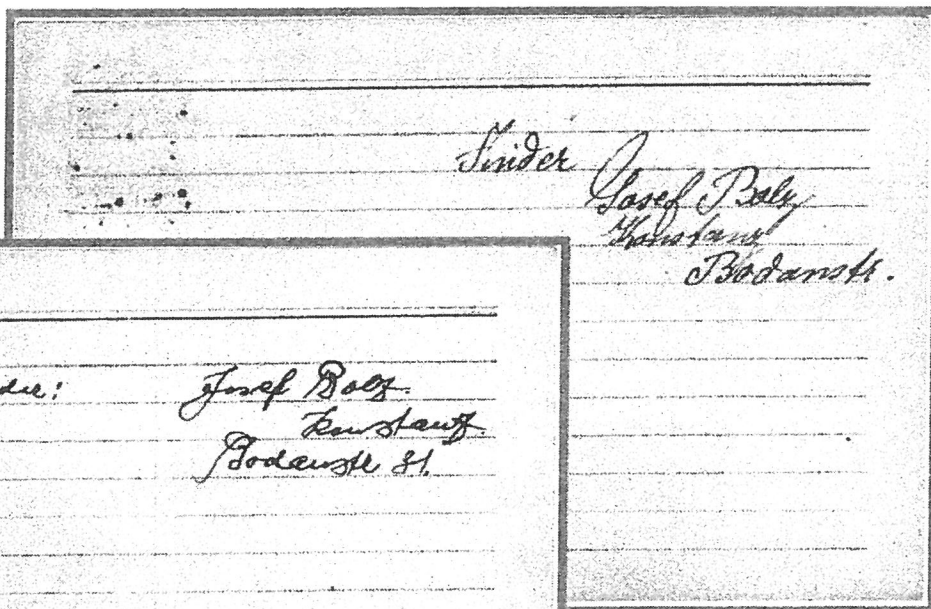 Finder
Josef Bolz
Konstanz
Bodanstr.
der:
Josef Bolz.
Konstanz.
Bodanstr 31.